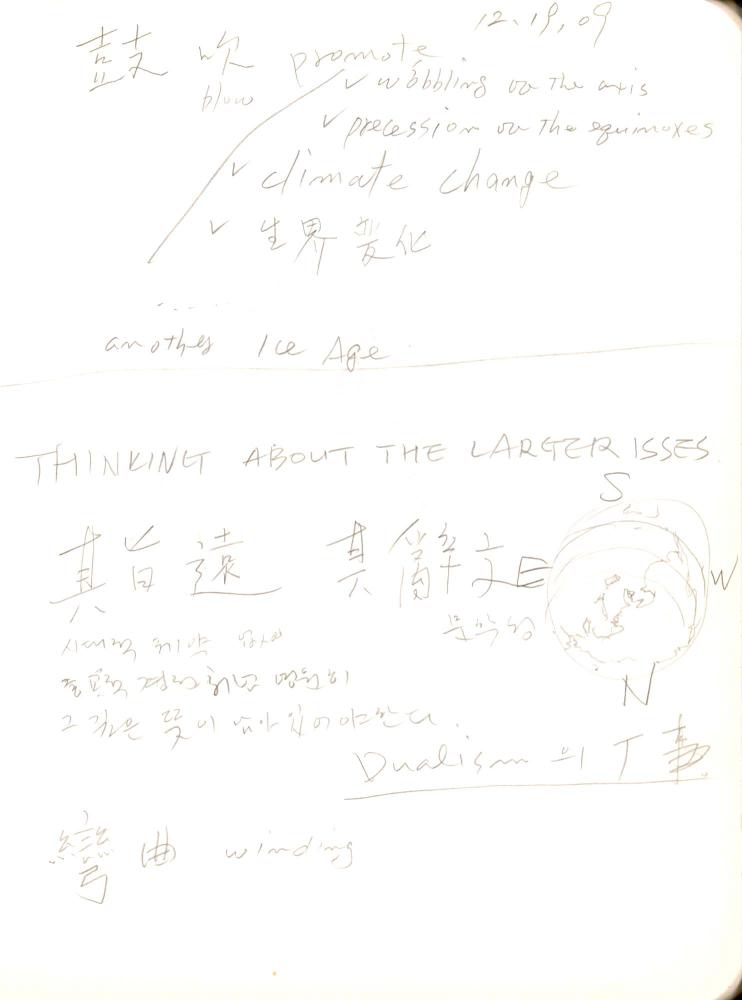 12.19.09
鼓 吹 promote
blow
✓ wobbling on the axis
✓ precession on the equinoxes
✓ climate change
✓ 生界 変化
......
another Ice Age
THINKING ABOUT THE LARGER ISSES
S
其旨遠 其辭文
E
W
문학성
N
그 깊은 뜻이 남아있어야 한다.
Dualism 의
彎曲 winding